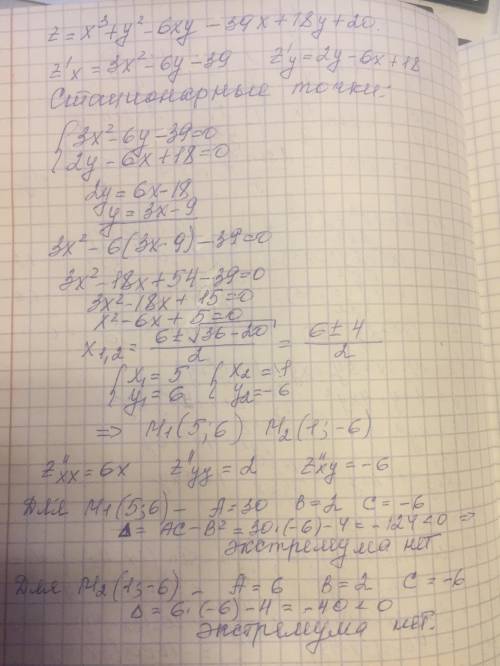 z = x³ + y² - 6xy - 39x + 18y + 20.
z'x = 3x² - 6y - 39 z'y = 2y - 6x + 18
Стационарные точки:
{ 3x² - 6y - 39 = 0
2y - 6x + 18 = 0
2y = 6x - 18
y = 3x - 9
3x² - 6(3x - 9) - 39 = 0
3x² - 18x + 54 - 39 = 0
3x² - 18x + 15 = 0
x² - 6x + 5 = 0
x₁,₂ = (6 ± √(36 - 20))/2 = (6 ± 4)/2
{ x₁ = 5 { x₂ = 1
y₁ = 6 y₂ = -6
⇒ M₁(5; 6) M₂(1; -6)
z''xx = 6x z''yy = 2 z''xy = -6
Для M₁(5; 6) - A = 30 B = 2 C = -6
Δ = AC - B² = 30·(-6) - 4 = -124 < 0 ⇒
экстремума нет
Для M₂(1; -6) - A = 6 B = 2 C = -6
Δ = 6·(-6) - 4 = -40 < 0
экстремума нет.